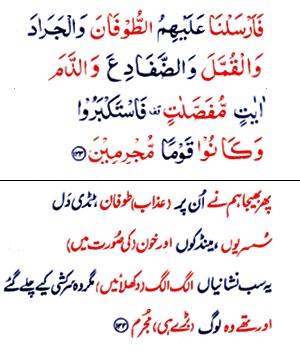 فَاَرْسَلْنَا عَلَيْهِمُ الطُّوْفَانَ وَالْجَرَادَ
وَالْقُمَّلَ وَالضَّفَادِعَ وَالدَّمَ
اٰيٰتٍ مُّفَصَّلٰتٍ قف فَاسْتَكْبَرُوْا
وَكَانُوْا قَوْمًا مُّجْرِمِيْنَ ﴿۱۳۳﴾
پھر بھیجا ہم نے اُن پر (عذاب) طوفان، ٹڈی دَل
سُسریوں، مینڈکوں اور خون (کی صُورت میں)
یہ سب نشانیاں الگ الگ (دکھلائیں) مگر وہ سرکشی کیے چلے گئے
اور تھے وہ لوگ (بڑے ہی) مُجرم ﴿۱۳۳﴾